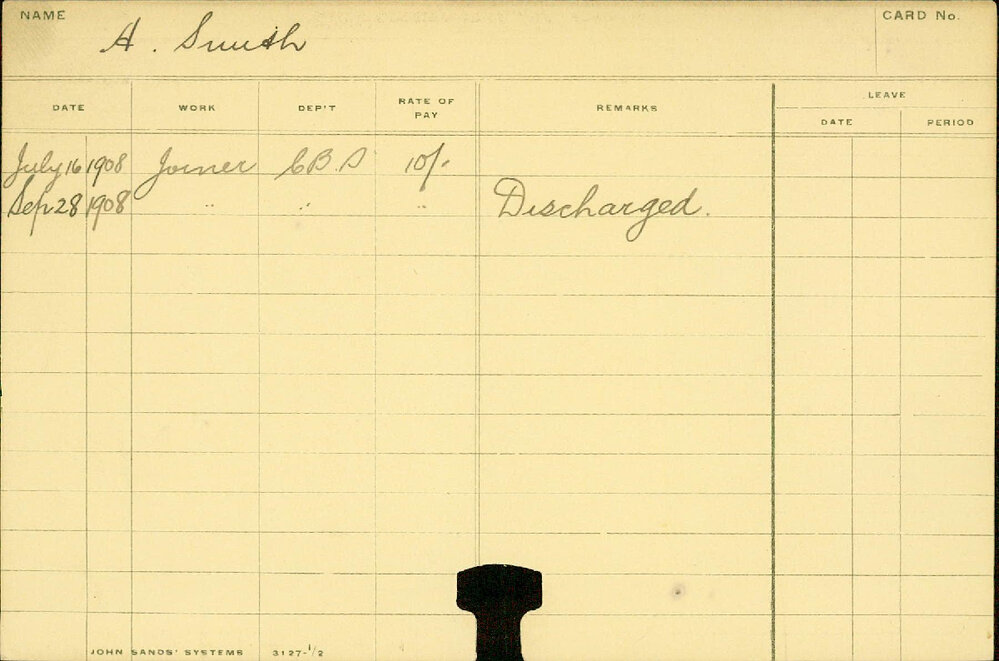 NAME A. Smith CARD No.
DATE WORK DEP'T RATE OF PAY REMARKS LEAVE
DATE PERIOD
July 16 1908 Joiner C.B.S 10/-
Sep 28 1908 " " " Discharged.
JOHN SANDS' SYSTEMS 3127-1/2